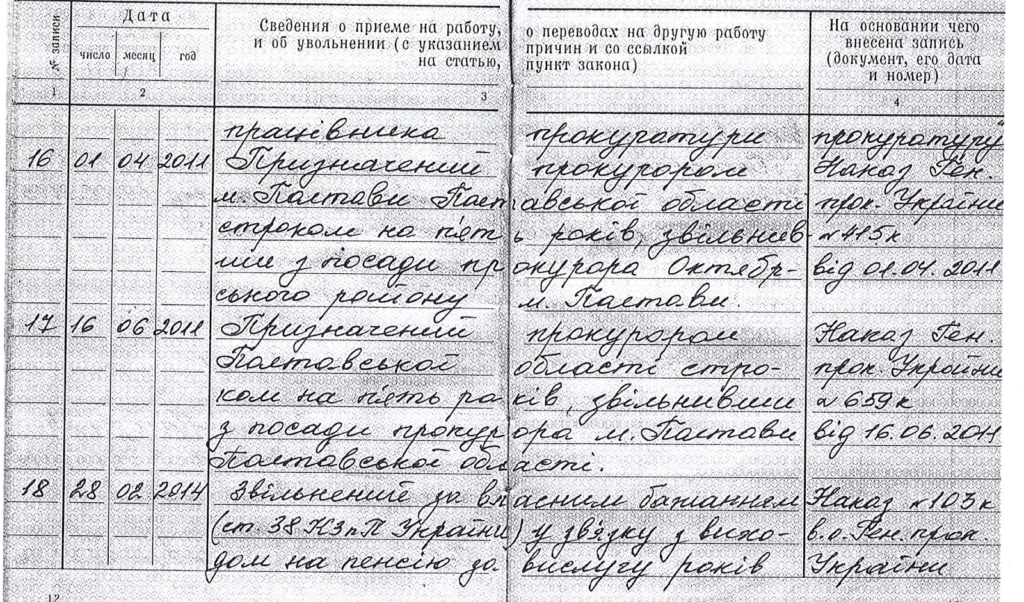 № записи
Дата
число месяц год
Сведения о приеме на работу, о переводах на другую работу
и об увольнении (с указанием причин и со ссылкой
на статью, пункт закона)
На основании чего
внесена запись
(документ, его дата
и номер)
1 2 3 4
працівника прокуратури прокуратуру"
16 01 04 2011 Призначений прокурором Наказ Ген.
м. Полтави Полтавської області прок. України
строком на п'ять років, звільнив- № 415к
ши з посади прокурора Октябр- від 01.04.2011
ського району м. Полтави.
17 16 06 2011 Призначений прокурором Наказ Ген.
Полтавської області стро- прок. України
ком на п'ять років, звільнивши № 659к
з посади прокурора м. Полтави від 16.06.2011
Полтавської області.
18 28 02 2014 Звільнений за власним бажанням Наказ № 103к
(ст. 38 КЗпП України) у зв'язку з вихо- в.о. Ген. прок.
дом на пенсію за вислугу років України
12